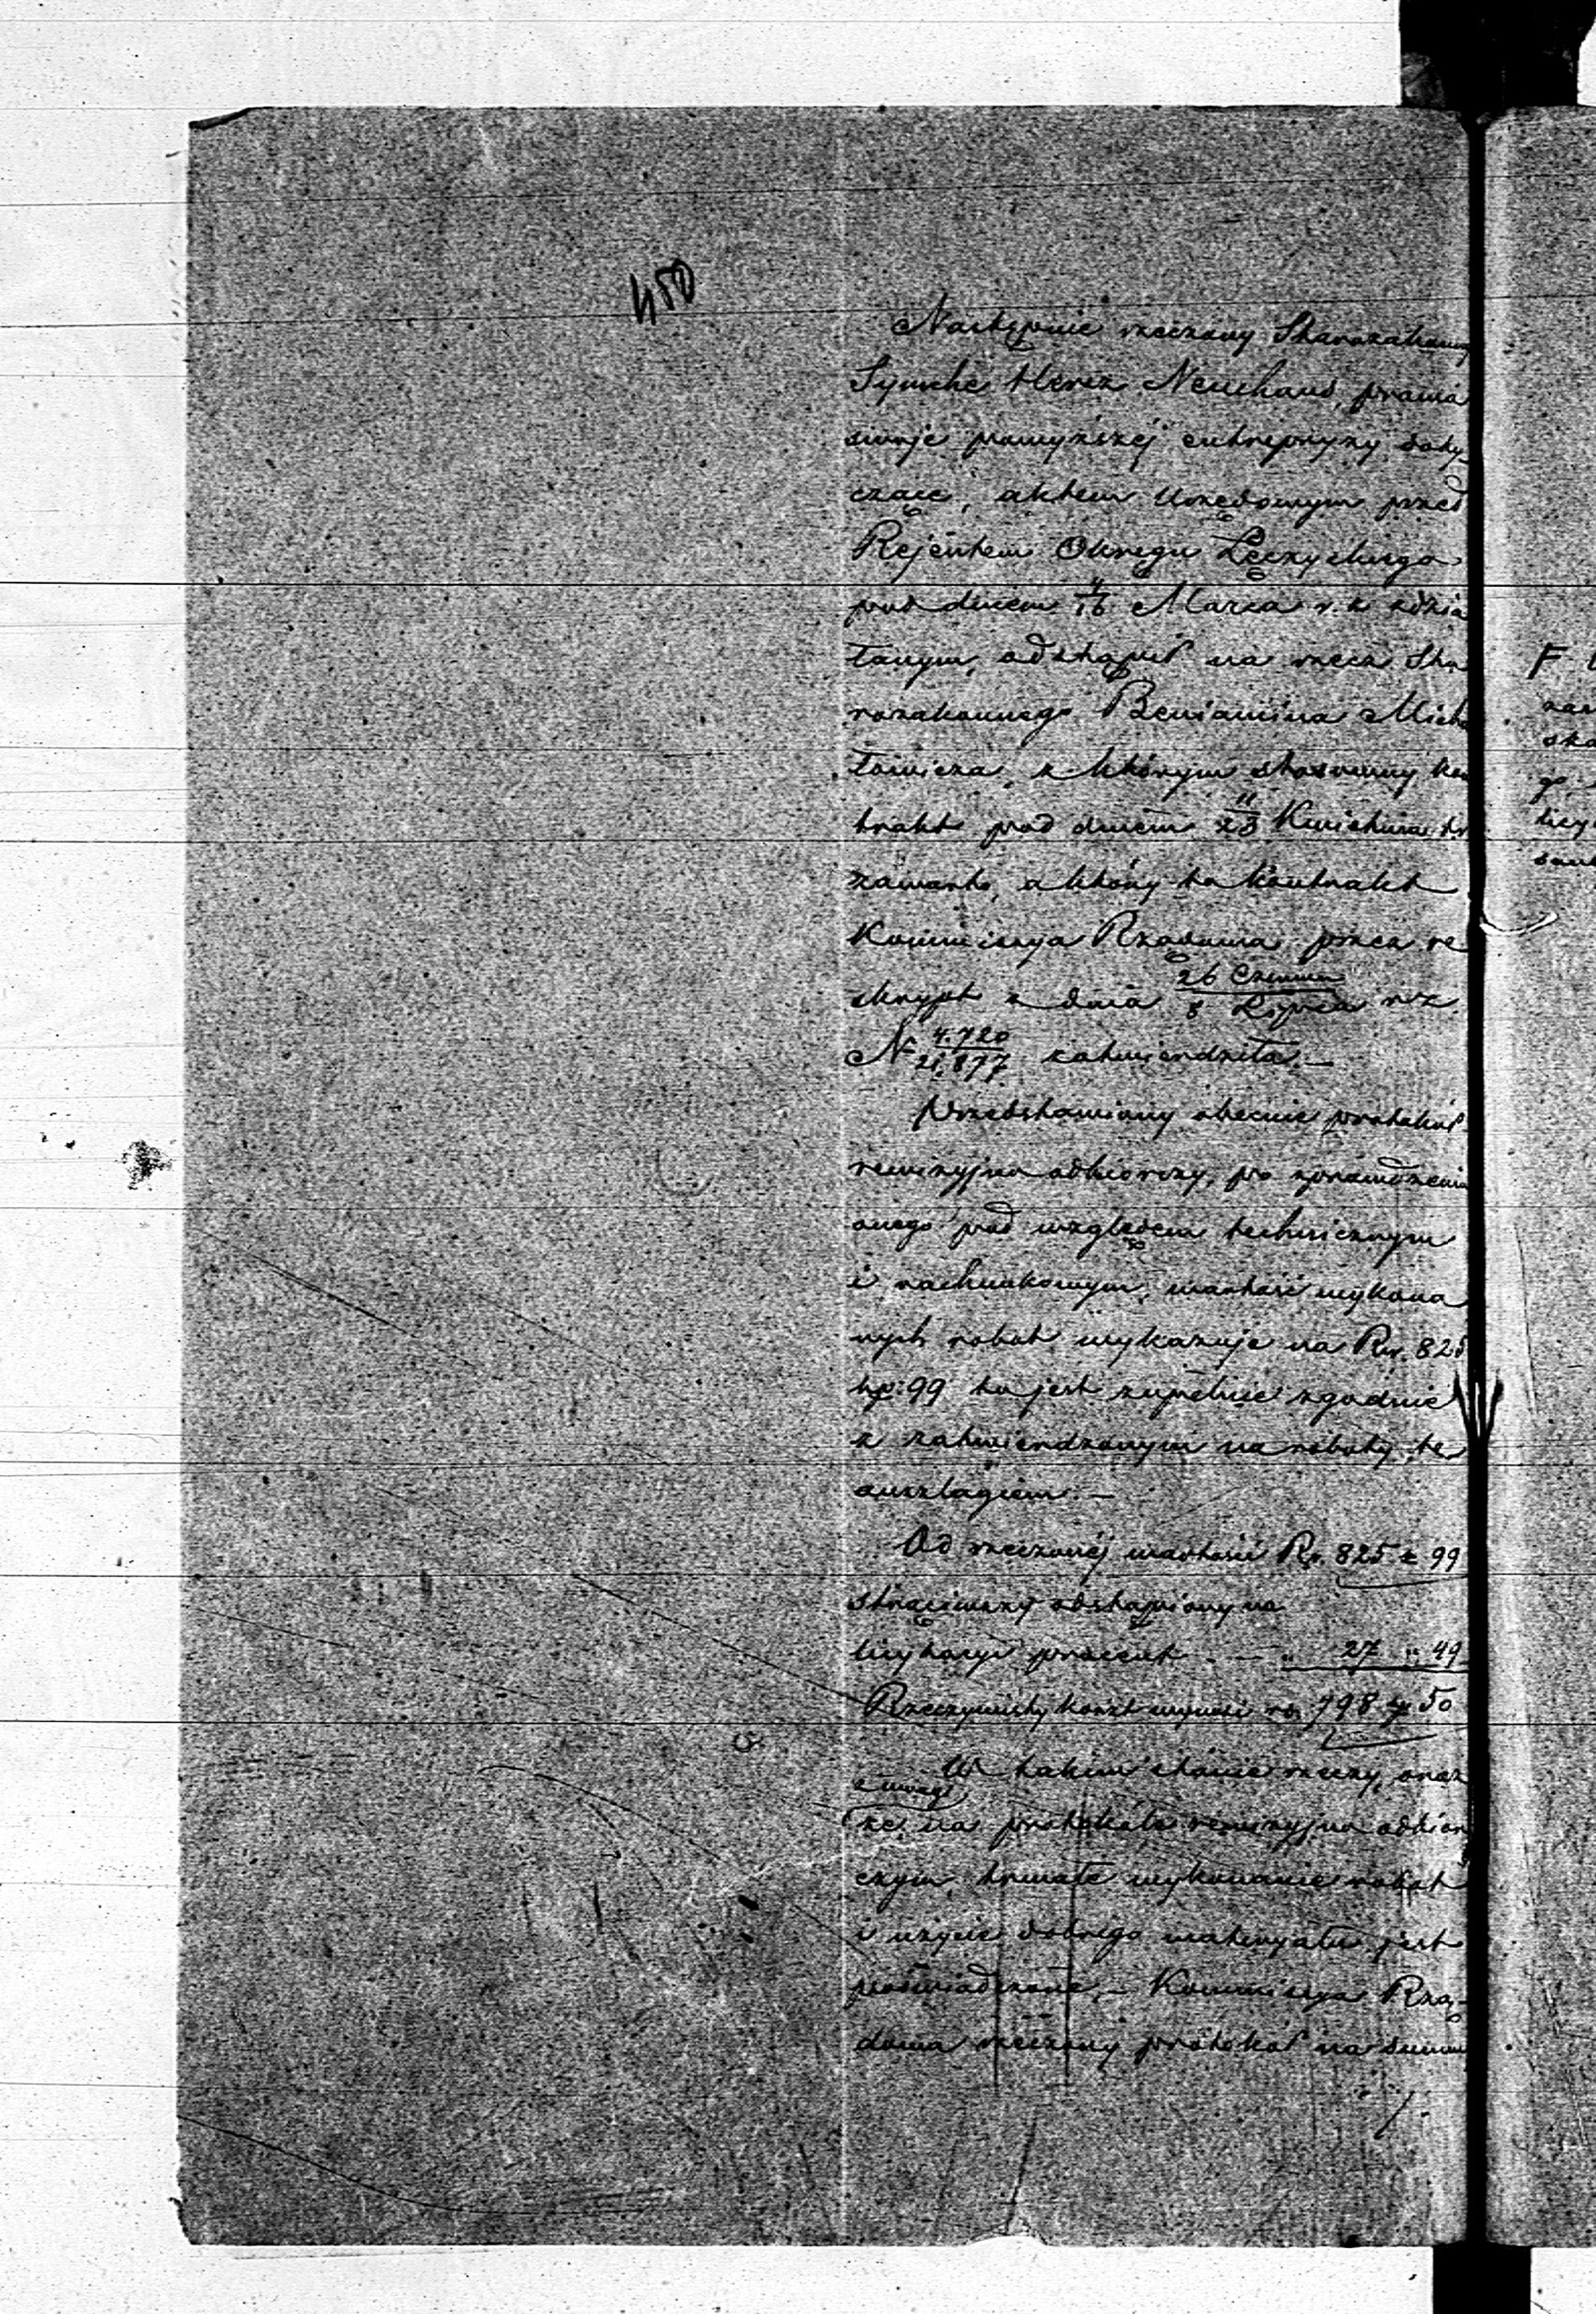 450
Następnie rzeczony Starozakonny
Symche Hersz Neuhaus, prawa
swoje powyższéj entrepryzy doty-
czące, aktem urzędowym przed
Rejentem Okręgu Łęczyckiego
pod dniem 4/16 Marca r. z. zdzia
łanym, odstąpił na rzecz Sta
rozakonnego Beniamina Micha
łowicza, z którym stosowny kon
trakt pod dniem 11/23 Kwietnia t.r.
zawarto, a który to kontrakt
Kommissya Rządowa przez re
skrypt z dnia 26 Czerwca/8 Lipca r. z.
N 4.720/21,877 zatwierdziła. —
Przedstawiony obecnie protokół
rewizyjno odbiorczy, po sprawdzeniu
onego pod względem technicznym
i rachunkowym, wartość wykona
nych robot wykazuje na Rsr. 825
kp: 99 to jest zupełnie zgodnie
z zatwierdzonym na roboty te
anszlagiem. —
Od rzeczonéj wartości Rs. 825 k 99
strąciwszy odstąpiony na
licytacyi procent . — „ 27 „ 49
Rzeczywisty koszt wynosi rs. 798 k 50
W takim stanie rzeczy, oraz
z uwagi
że na protokóle rewizyjno odbior
czym, trwałe wykonanie robot
i użycie dobrego materyału jest
poświadczone, — Kommissya Rzą-
dowa rzeczony protokół na summę
./.
F
zar
ska
licy